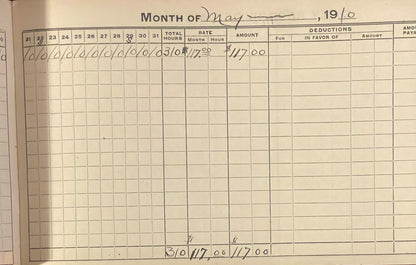 MONTH OF May, 1910
21 22 23 24 25 26 27 28 29 30 31 TOTAL HOURS RATE MONTH HOUR AMOUNT DEDUCTIONS FOR IN FAVOR OF AMOUNT AMOUN PAYA
10 10 10 10 10 10 10 10 10 10 310 $117.00 $117 00
$ $
310 117.00 117 00